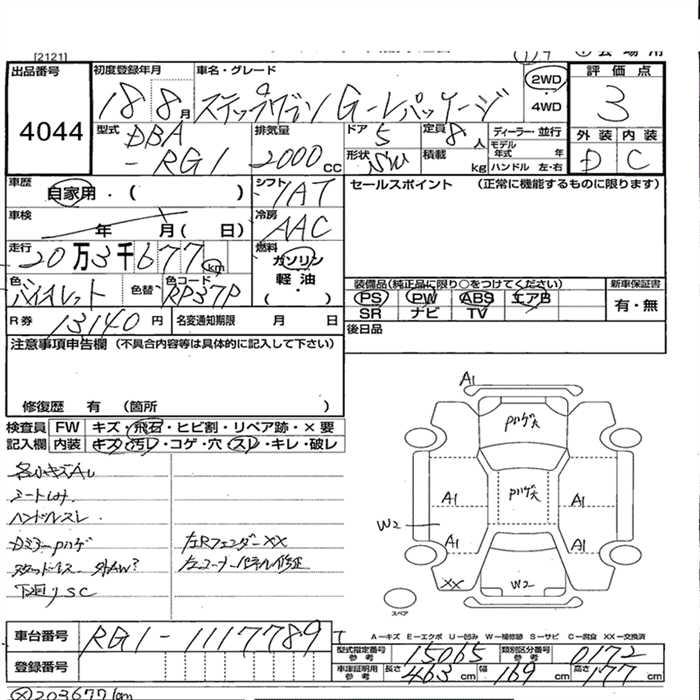 [2121]
出品番号 初度登録年月 車名・グレード 2WD ・ 4WD 評価点
4044 18 8月 ステップワゴン G-Lパッケージ 3
型式 DBA - RG1 排気量 2000cc ドア 5 定員 8人 ディーラー・並行 外装 内装
形状 SW 積載 kg モデル年式 年 ハンドル 左・右 D C
車歴 自家用・( ) シフト IAT セールスポイント (正常に機能するものに限ります)
車検 年 月( 日) 冷房 AAC
走行 20万3千677km 燃料 ガソリン 軽油 ( ・ )
色 バイオレット 色替 色コード RP37P 装備品(純正品に限り○をつけてください) 新車保証書
PS PW ABS エアB 有・無
SR ナビ TV
R券 13140円 名変通知期限 月 日 後日品
注意事項申告欄 (不具合内容等は具体的に記入して下さい)
修復歴 有 (箇所 )
検査員 FW キズ・飛石・ヒビ割・リペア跡・×要
記入欄 内装 キズ・汚レ・コゲ・穴・スレ・キレ・破レ
各小キズAし
シートしみ
ハンドルスレ.
Dミラーハゲ 左Rフェンダー XX
スタッドレス- 外AW? 左コーナーパネル修正
下廻りSC
A1
Pハゲ大
Pハゲ大
A1 A1
W2
A1 A1
XX W2
スペア
A-キズ E-エクボ U-凹み W-補修跡 S-サビ C-腐食 XX-交換済
車台番号 RG1-1117789
登録番号
型式指定番号 参考 15065 類別区分番号 参考 0172
車庫証明用 参考 長さ 463cm 幅 169cm 高さ 177cm
203677km